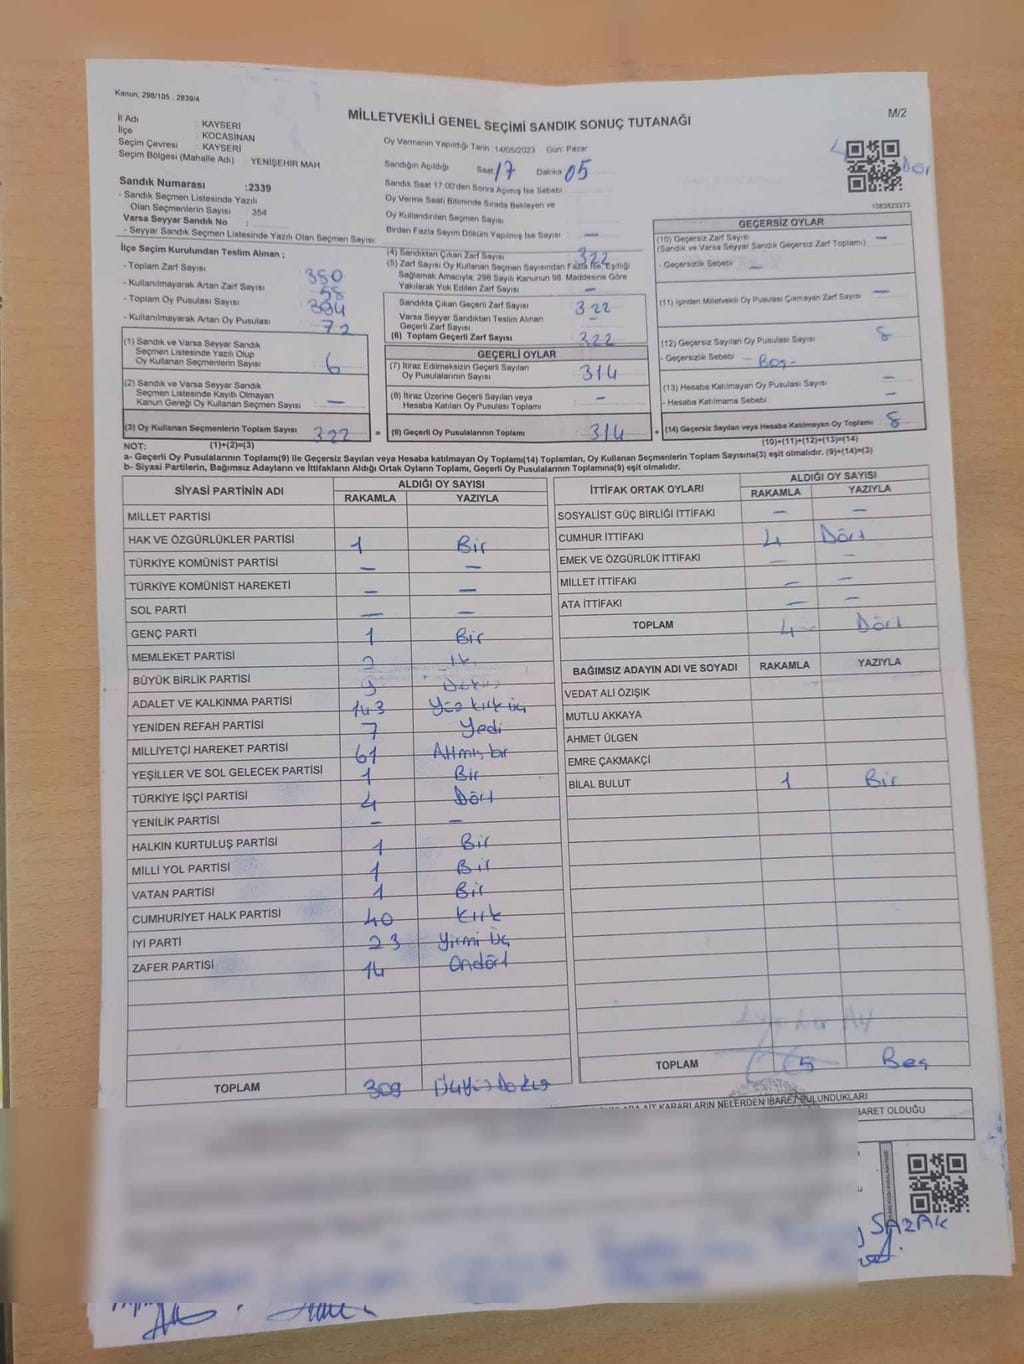 Kanun: 298/105 , 2839/4
MİLLETVEKİLİ GENEL SEÇİMİ SANDIK SONUÇ TUTANAĞI
M/2
İl Adı : KAYSERİ
İlçe : KOCASİNAN
Seçim Çevresi : KAYSERİ
Seçim Bölgesi (Mahalle Adı) YENİŞEHİR MAH
Sandık Numarası :2339
- Sandık Seçmen Listesinde Yazılı
Olan Seçmenlerin Sayısı : 354
Varsa Seyyar Sandık No :
- Seyyar Sandık Seçmen Listesinde Yazılı Olan Seçmen Sayısı:
Oy Vermenin Yapıldığı Tarih 14/05/2023 Gün: Pazar
Sandığın Açıldığı Saat 17 Dakika 05
Sandık Saat 17:00'den Sonra Açılmış İse Sebebi
Oy Verme Saati Bitiminde Sırada Bekleyen ve
Oy Kullandırılan Seçmen Sayısı
Birden Fazla Sayım Döküm Yapılmış İse Sayısı —
Dör
1083623373
İlçe Seçim Kurulundan Teslim Alınan ;
- Toplam Zarf Sayısı 380
- Kullanılmayarak Artan Zarf Sayısı 58
- Toplam Oy Pusulası Sayısı 394
- Kullanılmayarak Artan Oy Pusulası 72
(1) Sandık ve Varsa Seyyar Sandık
Seçmen Listesinde Yazılı Olup
Oy Kullanan Seçmenlerin Sayısı 6
(2) Sandık ve Varsa Seyyar Sandık
Seçmen Listesinde Kayıtlı Olmayan
Kanun Gereği Oy Kullanan Seçmen Sayısı —
(3) Oy Kullanan Seçmenlerin Toplam Sayısı 322 =
(4) Sandıktan Çıkan Zarf Sayısı 322
(5) Zarf Sayısı Oy Kullanan Seçmen Sayısından Fazla İse, Eşitliği
Sağlamak Amacıyla, 298 Sayılı Kanunun 98. Maddesine Göre
Yakılarak Yok Edilen Zarf Sayısı —
Sandıkta Çıkan Geçerli Zarf Sayısı 322
Varsa Seyyar Sandıktan Teslim Alınan
Geçerli Zarf Sayısı
(6) Toplam Geçerli Zarf Sayısı 322
GEÇERLİ OYLAR
(7) İtiraz Edilmeksizin Geçerli Sayılan
Oy Pusulalarının Sayısı 314
(8) İtiraz Üzerine Geçerli Sayılan veya
Hesaba Katılan Oy Pusulası Toplamı —
(9) Geçerli Oy Pusulalarının Toplamı 314 +
GEÇERSİZ OYLAR
(10) Geçersiz Zarf Sayısı —
(Sandık ve Varsa Seyyar Sandık Geçersiz Zarf Toplamı)
- Geçersizlik Sebebi —
(11) İçinden Milletvekili Oy Pusulası Çıkmayan Zarf Sayısı —
(12) Geçersiz Sayılan Oy Pusulası Sayısı 8
- Geçersizlik Sebebi - Boş -
(13) Hesaba Katılmayan Oy Pusulası Sayısı —
- Hesaba Katılmama Sebebi —
(14) Geçersiz Sayılan veya Hesaba Katılmayan Oy Toplamı 8
NOT: (1)+(2)=(3) (10)+(11)+(12)+(13)=(14)
a- Geçerli Oy Pusulalarının Toplamı(9) ile Geçersiz Sayılan veya Hesaba katılmayan Oy Toplamı(14) Toplamları, Oy Kullanan Seçmenlerin Toplam Sayısına(3) eşit olmalıdır. (9)+(14)=(3)
b- Siyasi Partilerin, Bağımsız Adayların ve İttifakların Aldığı Ortak Oyların Toplamı, Geçerli Oy Pusulalarının Toplamına(9) eşit olmalıdır.
SİYASİ PARTİNİN ADI ALDIĞI OY SAYISI
RAKAMLA YAZIYLA
MİLLET PARTİSİ
HAK VE ÖZGÜRLÜKLER PARTİSİ 1 Bir
TÜRKİYE KOMÜNİST PARTİSİ — —
TÜRKİYE KOMÜNİST HAREKETİ — —
SOL PARTİ — —
GENÇ PARTİ 1 Bir
MEMLEKET PARTİSİ 2
BÜYÜK BİRLİK PARTİSİ 9 Dokuz
ADALET VE KALKINMA PARTİSİ 143 Yüz kırk üç
YENİDEN REFAH PARTİSİ 7 Yedi
MİLLİYETÇİ HAREKET PARTİSİ 61 Altmış bir
YEŞİLLER VE SOL GELECEK PARTİSİ 1 Bir
TÜRKİYE İŞÇİ PARTİSİ 4 Dört
YENİLİK PARTİSİ — —
HALKIN KURTULUŞ PARTİSİ 1 Bir
MİLLİ YOL PARTİSİ 1 Bir
VATAN PARTİSİ 1 Bir
CUMHURİYET HALK PARTİSİ 40 Kırk
İYİ PARTİ 23 Yirmi üç
ZAFER PARTİSİ 14 Ondört
TOPLAM 309 Üçyüz Dokuz
İTTİFAK ORTAK OYLARI ALDIĞI OY SAYISI
RAKAMLA YAZIYLA
SOSYALİST GÜÇ BİRLİĞİ İTTİFAKI — —
CUMHUR İTTİFAKI 4 Dört
EMEK VE ÖZGÜRLÜK İTTİFAKI — —
MİLLET İTTİFAKI — —
ATA İTTİFAKI — —
TOPLAM 4 Dört
BAĞIMSIZ ADAYIN ADI VE SOYADI RAKAMLA YAZIYLA
VEDAT ALİ ÖZIŞIK
MUTLU AKKAYA
AHMET ÜLGEN
EMRE ÇAKMAKÇİ
BİLAL BULUT 1 Bir
TOPLAM 5 Beş
KARARLARIN NELERDEN İBARET BULUNDUKLARI
İBARET OLDUĞU
SAZAK